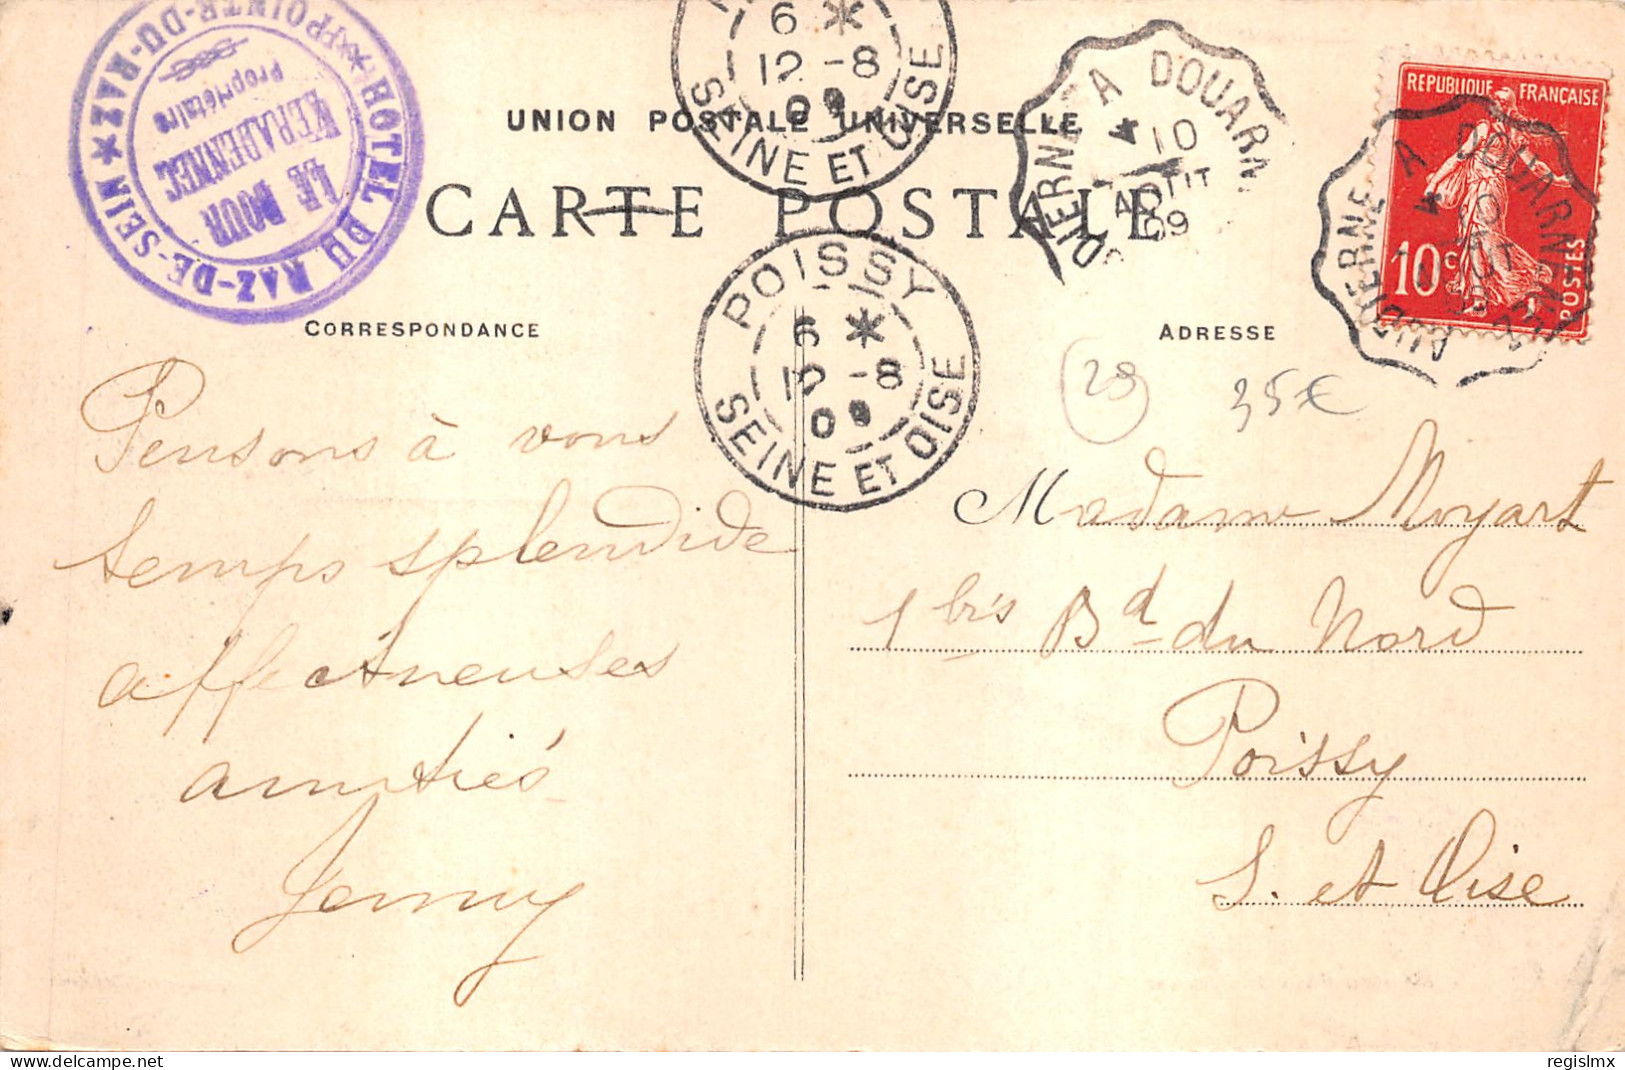 HOTEL DU RAZ-DE-SEIN ★ POINTE-DU-RAZ ★
LE DOUR
KERADENNEC
Propriétaire
6 *
12 -8
09
SEINE ET OISE
UNION POSTALE UNIVERSELLE
CARTE POSTALE
DIERNE A DOUARN
4
10
AOUT
09
REPUBLIQUE FRANÇAISE
10c
POSTES
AUDIERNE A DOUARNEN
POISSY
6 *
12 -8
09
SEINE ET OISE
CORRESPONDANCE
ADRESSE
28
35€
Pensons à vous
temps splendide
affectueuses
amitiés
Jenny
Madame Moyart
1 bis Bd du Nord
Poissy
S. et Oise
regislmx